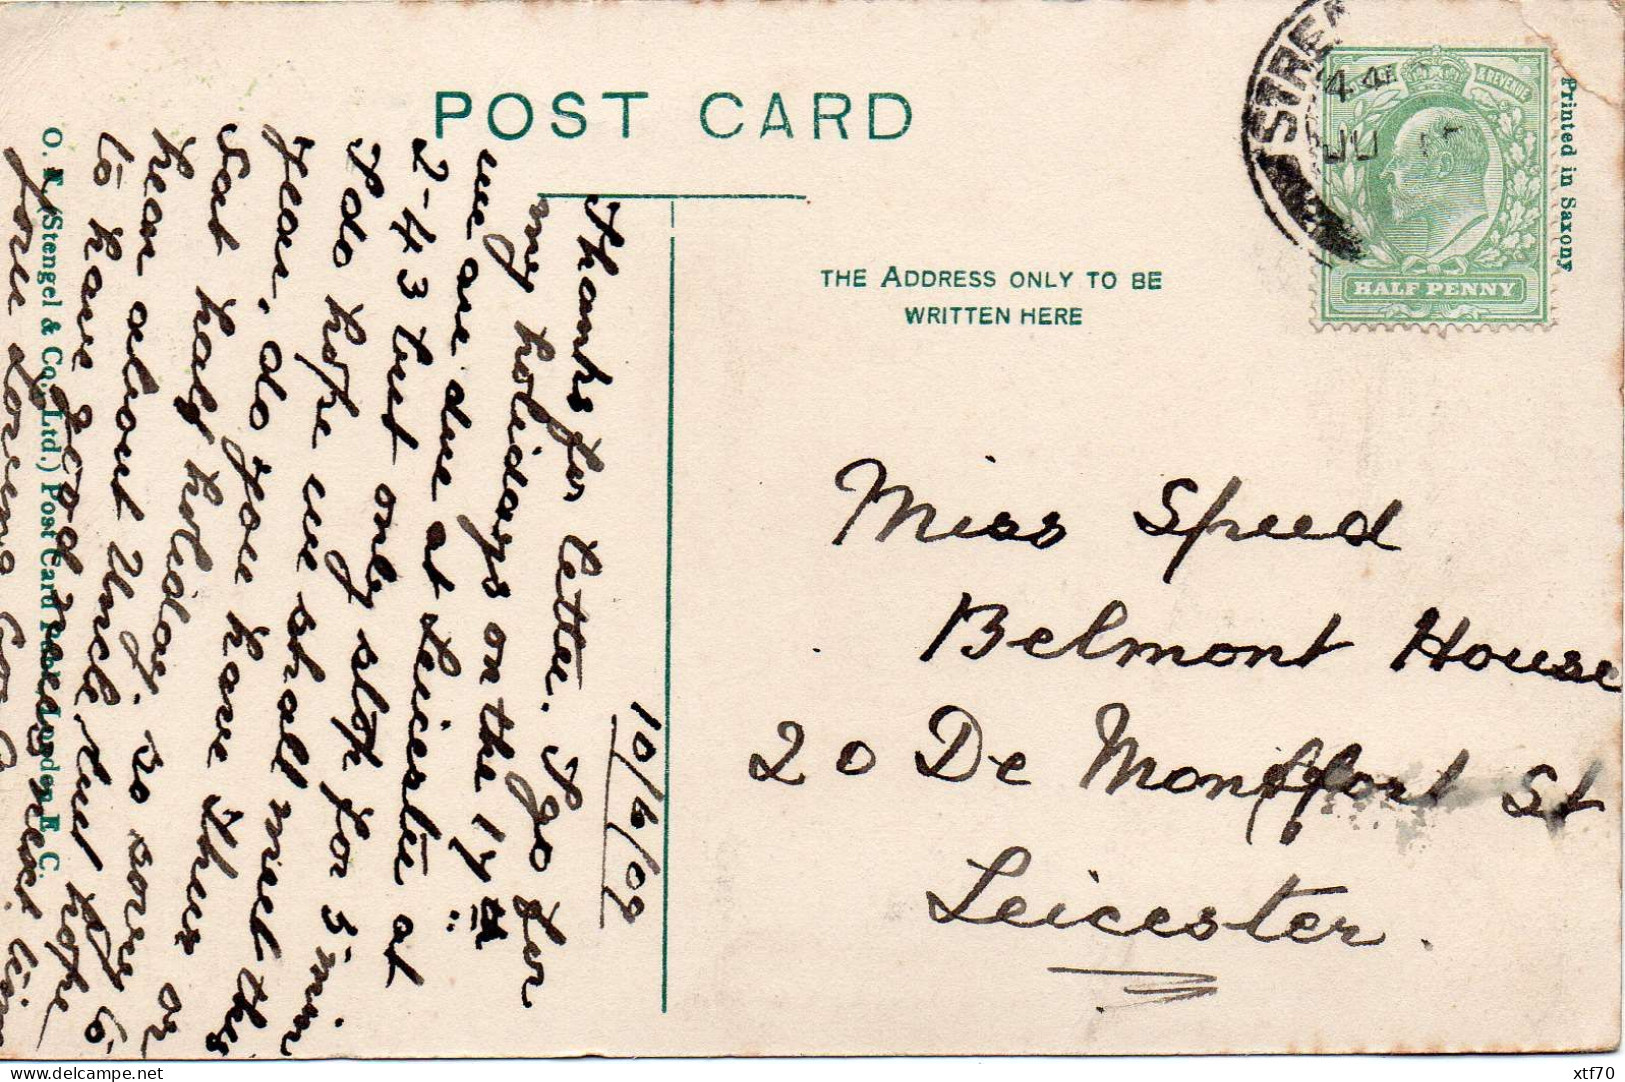 POST CARD
THE ADDRESS ONLY TO BE
WRITTEN HERE
Printed in Saxony
& REVENUE
HALF PENNY
STREA
JU
10/6/09
Thanks for letter. I go for
my holidays on the 17th
we are due at Leicester at
2-43 but only stop for 5 min
I do hope we shall meet this
year, do you have ther
Sat half holiday. or
hear about Uncle, so sorry
to have but hope to
good news next time
Fore loving
Miss Speed
Belmont House
20 De Montfort St
Leicester.
(Stengel & Co., Ltd.) Post Card London E. C.
xtf70
delcampe.net